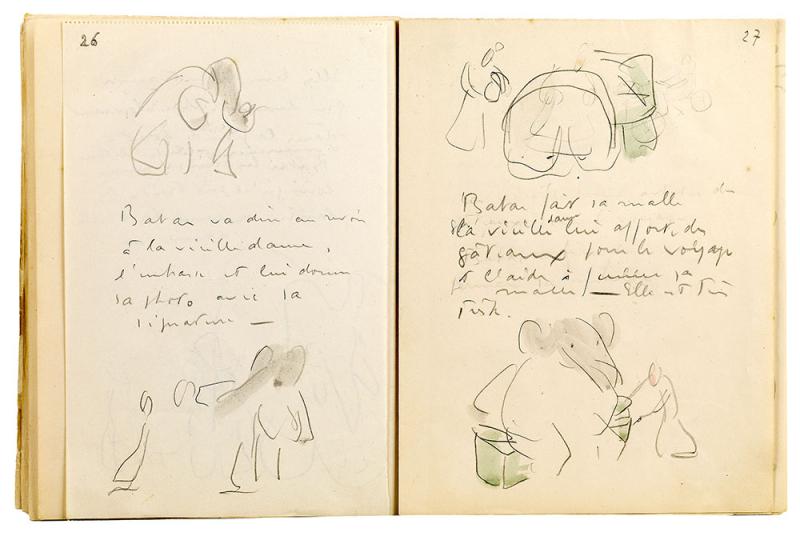 26
Babar va dire au revoir
à la vieille dame,
l'embrasse et lui donne
sa photo avec sa
signature —
27
Babar fait sa malle
la vieille dame lui apporte des
gâteaux pour le voyage
et l'aide à fermer sa
malle — Elle est très
triste.